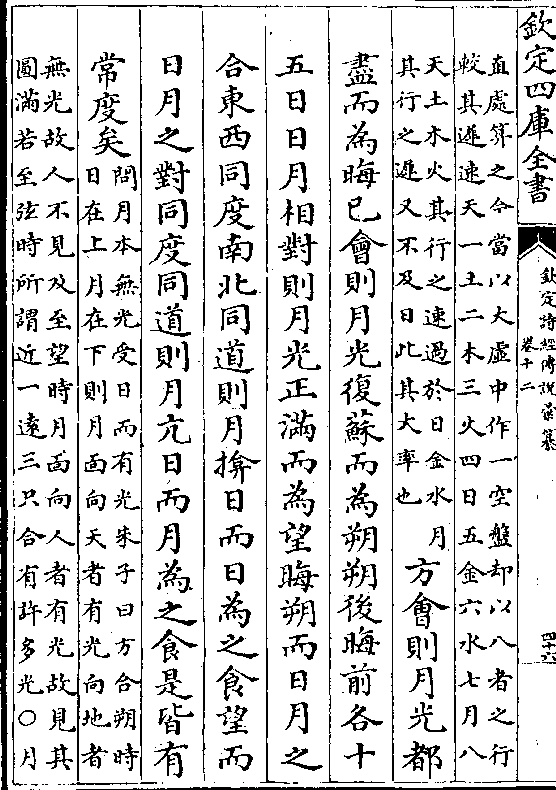 欽定四庫全書
欽定詩經傳說彙纂
卷十二
四十六
直處算之今當以大虛中作一空盤却以八者之行
較其遲速天一土二木三火四日五金六水七月八
天土木火其行之速過於日金水月
其行之遲又不及日此其大率也
方會則月光都
盡而為晦已會則月光復蘇而為朔朔後晦前各十
五日日月相對則月光正滿而為望晦朔而日月之
合東西同度南北同道則月揜日而日為之食望而
日月之對同度同道則月亢日而月為之食是皆有
常度矣
問月本無光受日而有光朱子曰方合朔時
日在上月在下則月面向天者有光向地者
無光故人不見及至望時月面向人者有光故見其
圓滿若至弦時所謂近一遠三只合有許多光○月